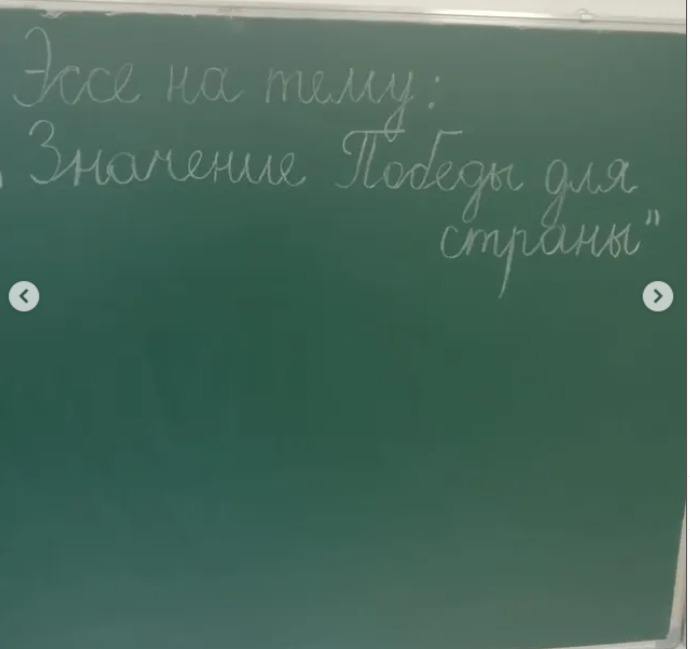 Эссе на тему:
„Значение Победы для
страны"